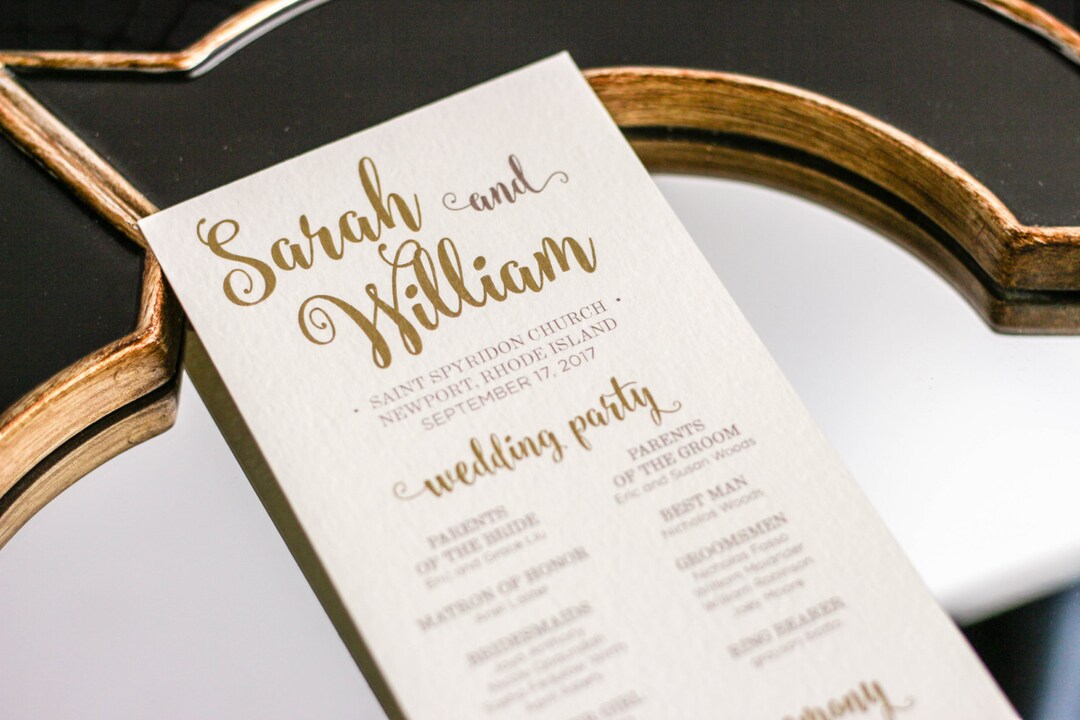 Sarah and
William
• SAINT SPYRIDON CHURCH •
NEWPORT, RHODE ISLAND
SEPTEMBER 17, 2017
wedding party
PARENTS
OF THE BRIDE
Eric and Grace Liu
MATRON OF HONOR
BRIDESMAIDS
GIRL
PARENTS
OF THE GROOM
Eric and Susan Woods
BEST MAN
Nicholas Woods
GROOMSMEN
Nicholas Fosso
William
William Robinson
Joey Moore
RING BEARER